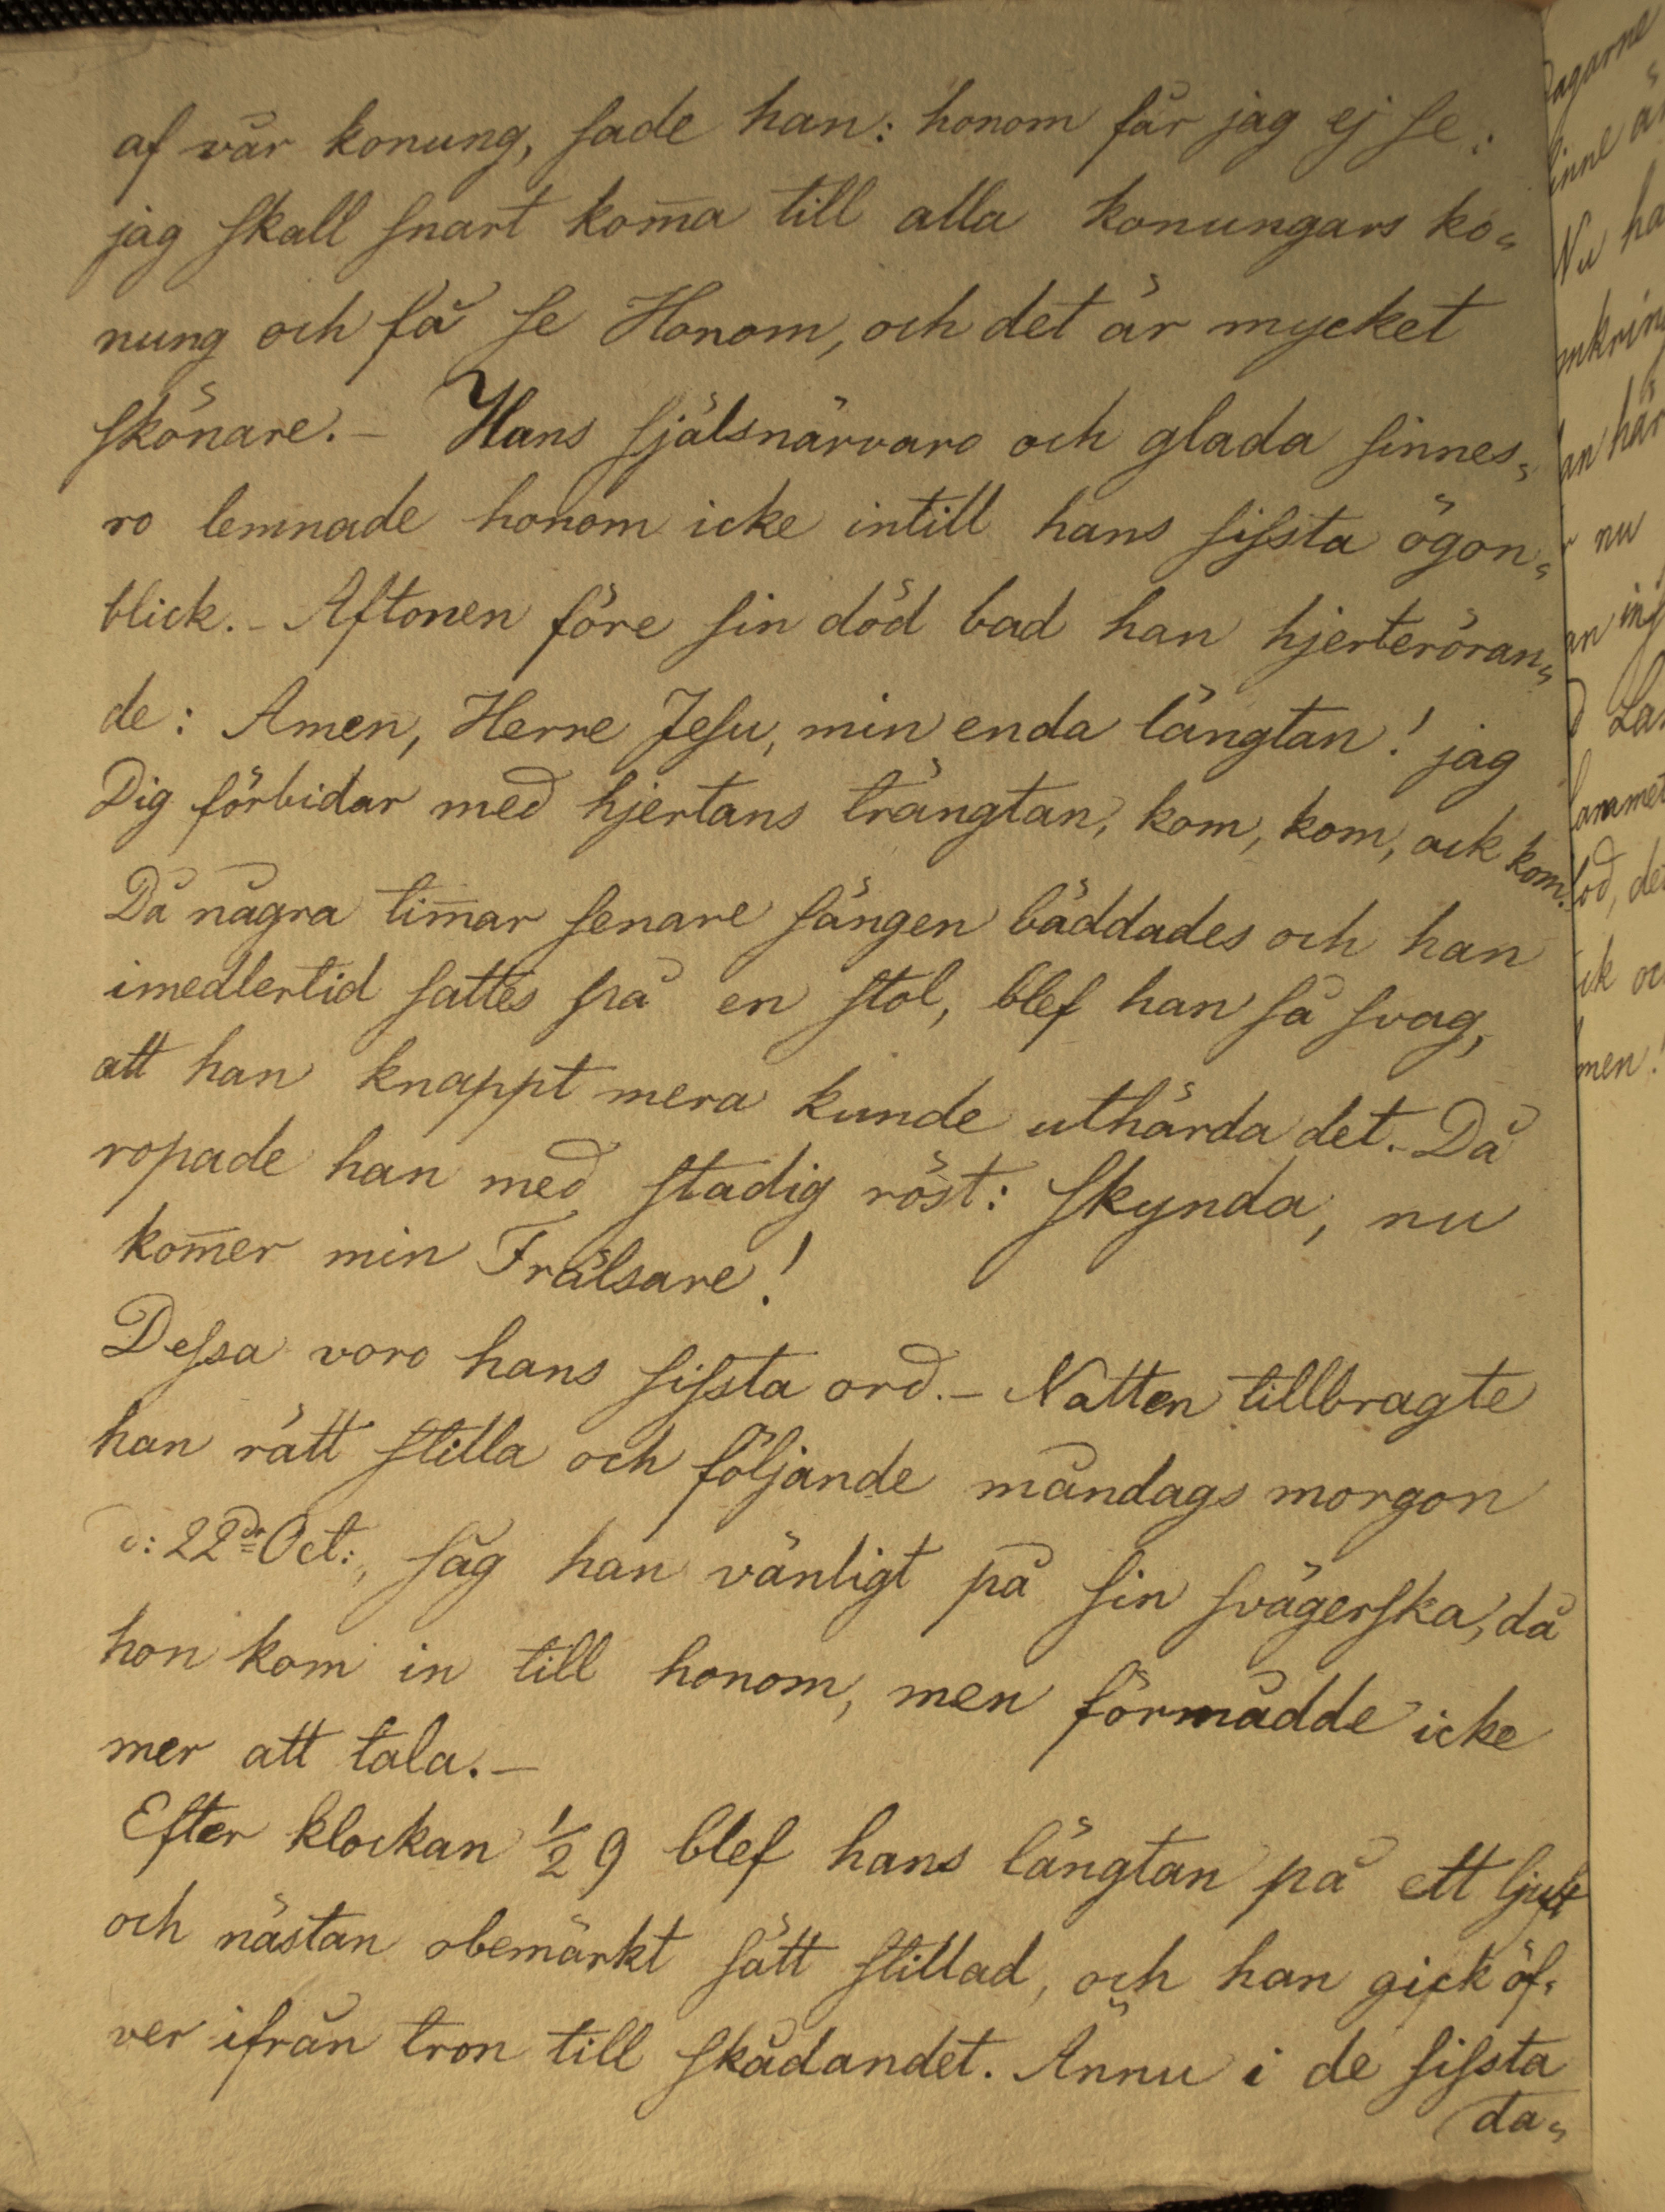 af vår konung, sade han: honom får jag ej se:
jag skall snart kom̅a till alla konungars ko=
nung och få se Honom, och det är mycket
skönare. – Hans själsnärvaro och glada sinnes=
ro lemnade honom icke intill hans sissta ögon=
blick. – Aftonen före sin död bad han hjerteröran=
de: Amen, Herre Jesu, min enda längtan! jag
Dig förbidar med hjertans trängtan, kom, kom, ack kom.
Då några tim̅ar senare sängen bäddades och han
imedlertid sattes på en stol, blef han så svag,
att han knappt mera kunde uthärda det. – Då
ropade han med stadig röst: skynda, nu
kom̅er min Frälsare!
Dessa voro hans sissta ord. – Natten tillbragte
han rätt stilla och följande måndags morgon
d: 22dr Oct:, såg han vänligt på sin svägerska, då
hon kom in till honom, men förmådde icke
mer att tala. –
Efter klockan ½ 9 blef hans längtan på ett ljuft
och nästan obemärkt sätt stillad, och han gick öf=
ver ifrån tron till skådandet. Ännu i de sissta
da=
nu